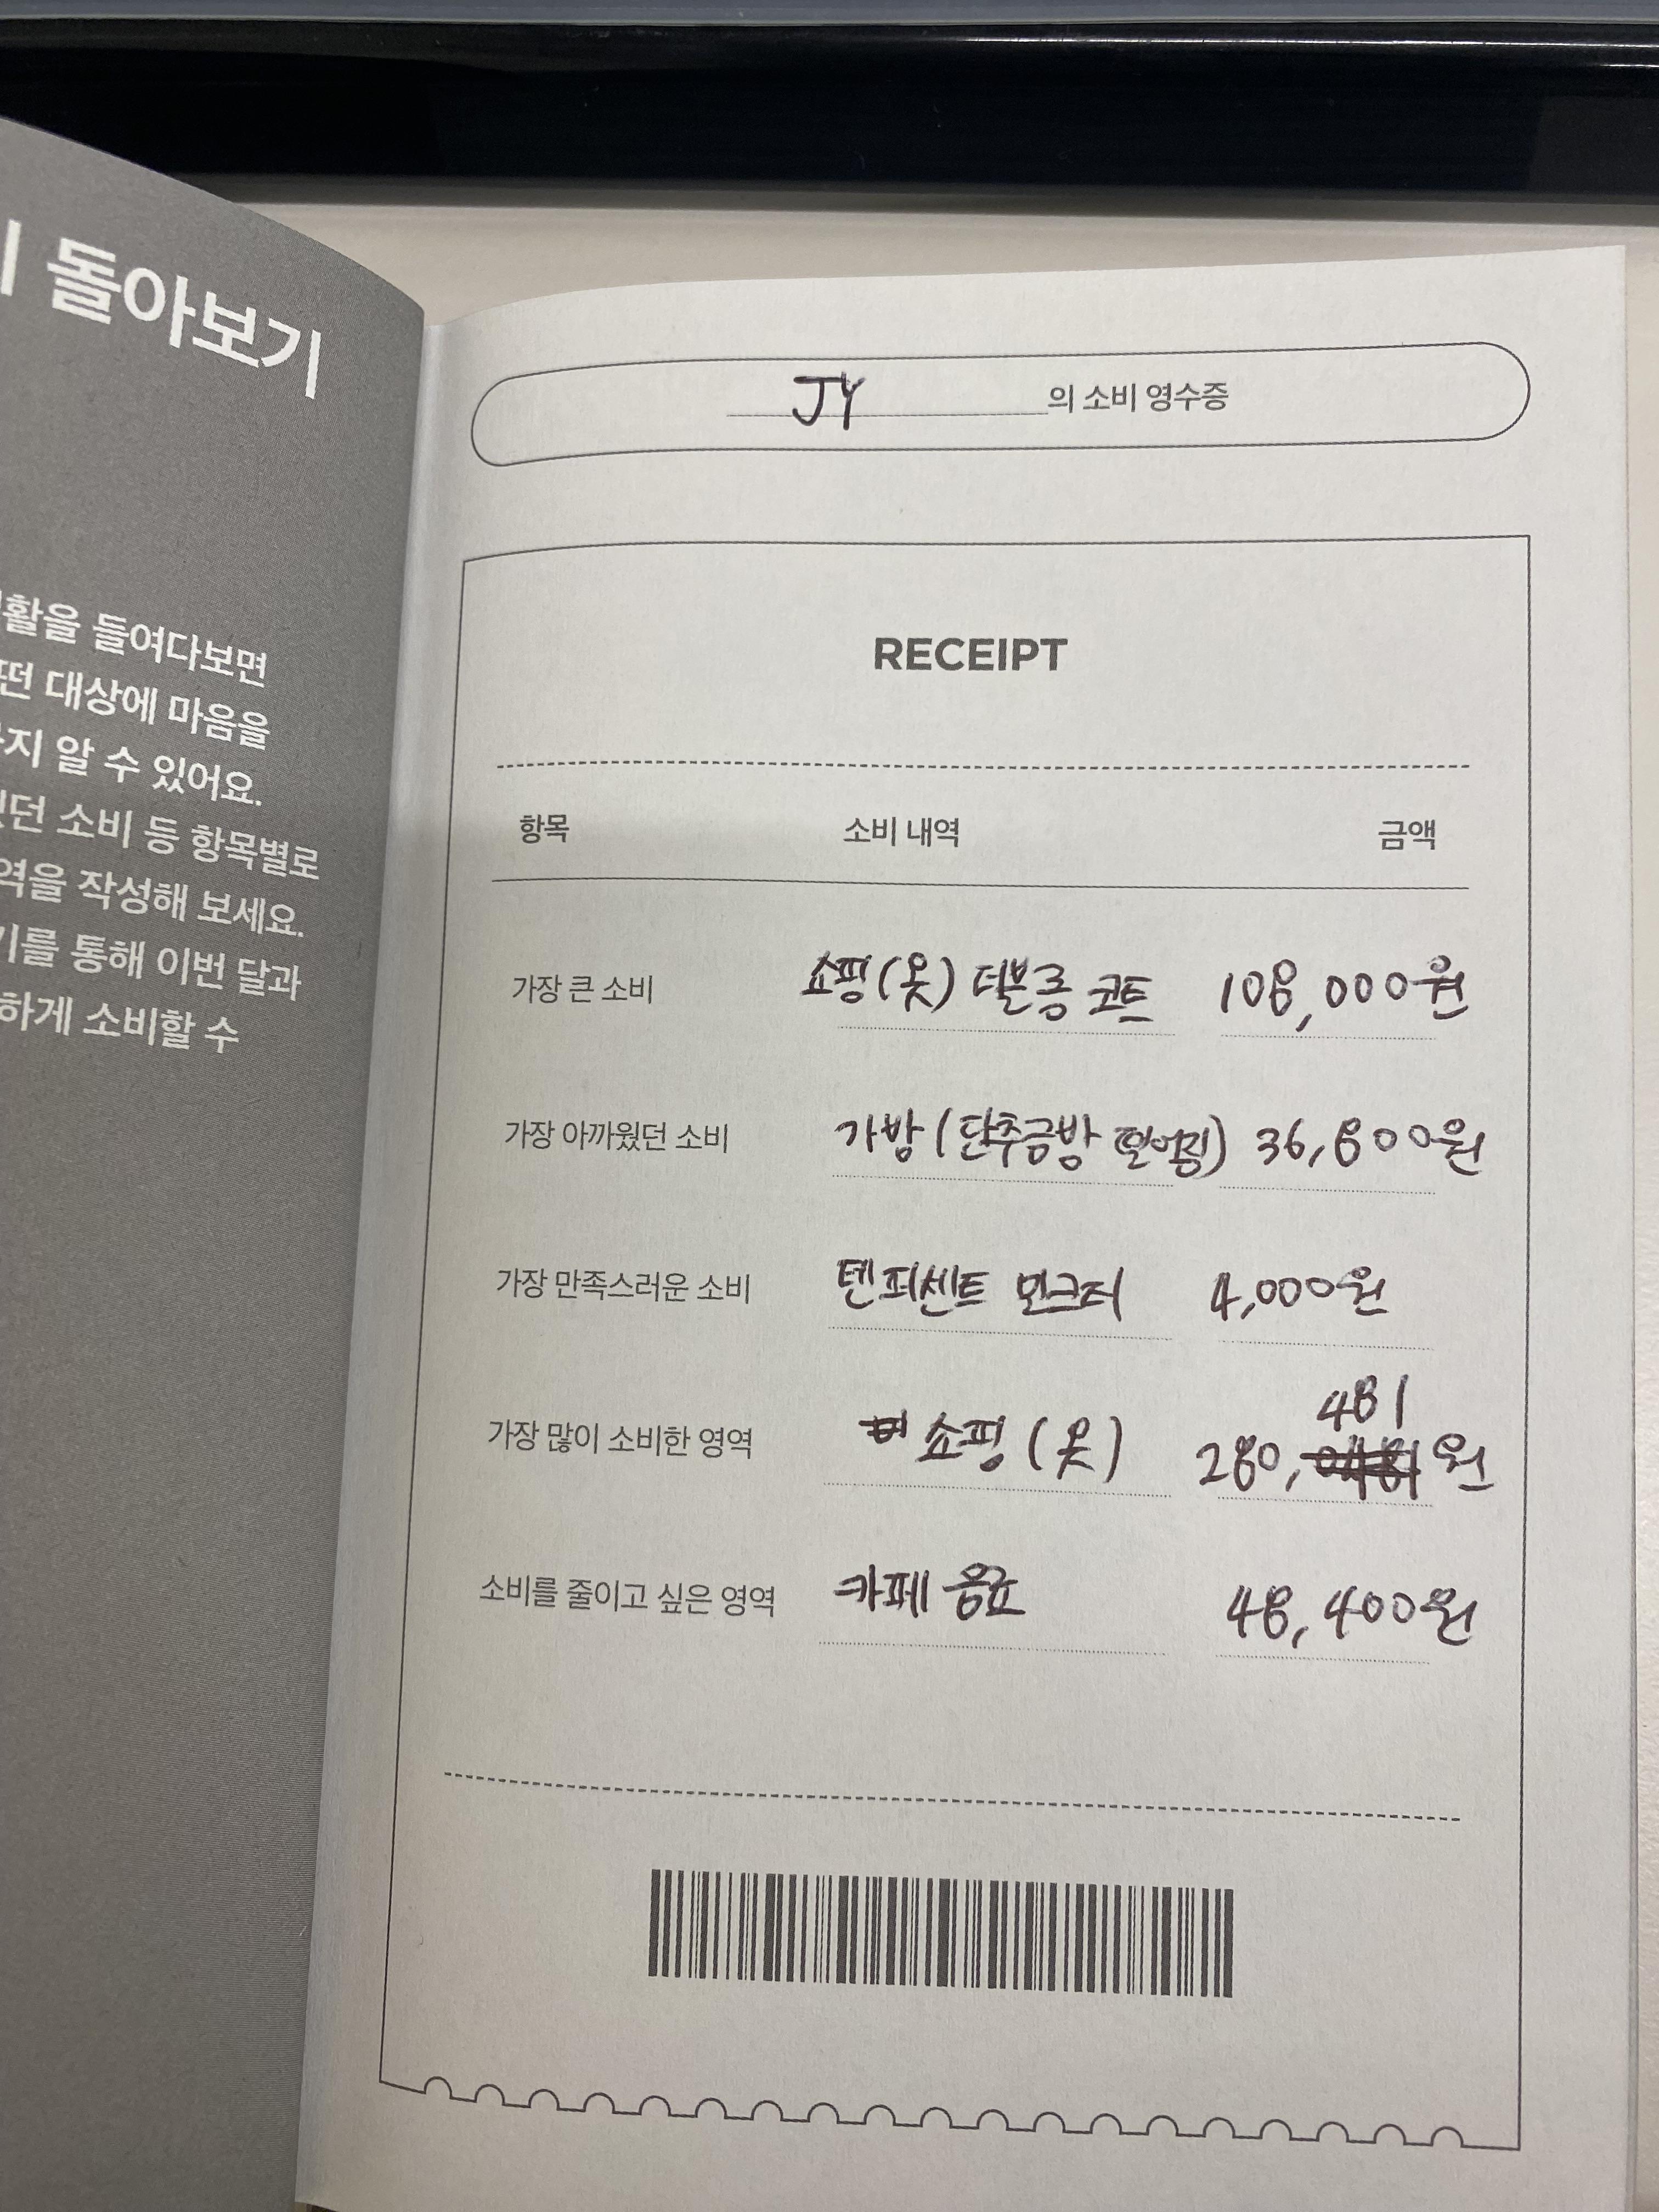 돌아보기
활을 들여다보면
떤 대상에 마음을
지 알 수 있어요.
던 소비 등 항목별로
역을 작성해 보세요.
기를 통해 이번 달과
하게 소비할 수
JY의 소비 영수증
RECEIPT
항목 소비 내역 금액
가장 큰 소비 쇼핑(옷) 더블롱 코트 108,000원
가장 아까웠던 소비 가방 (단추금방 떨어짐) 36,800원
가장 만족스러운 소비 텐퍼센트 먼크터 4,000원
가장 많이 소비한 영역 쇼핑 (옷) 280,481원
소비를 줄이고 싶은 영역 카페 음료 48,400원